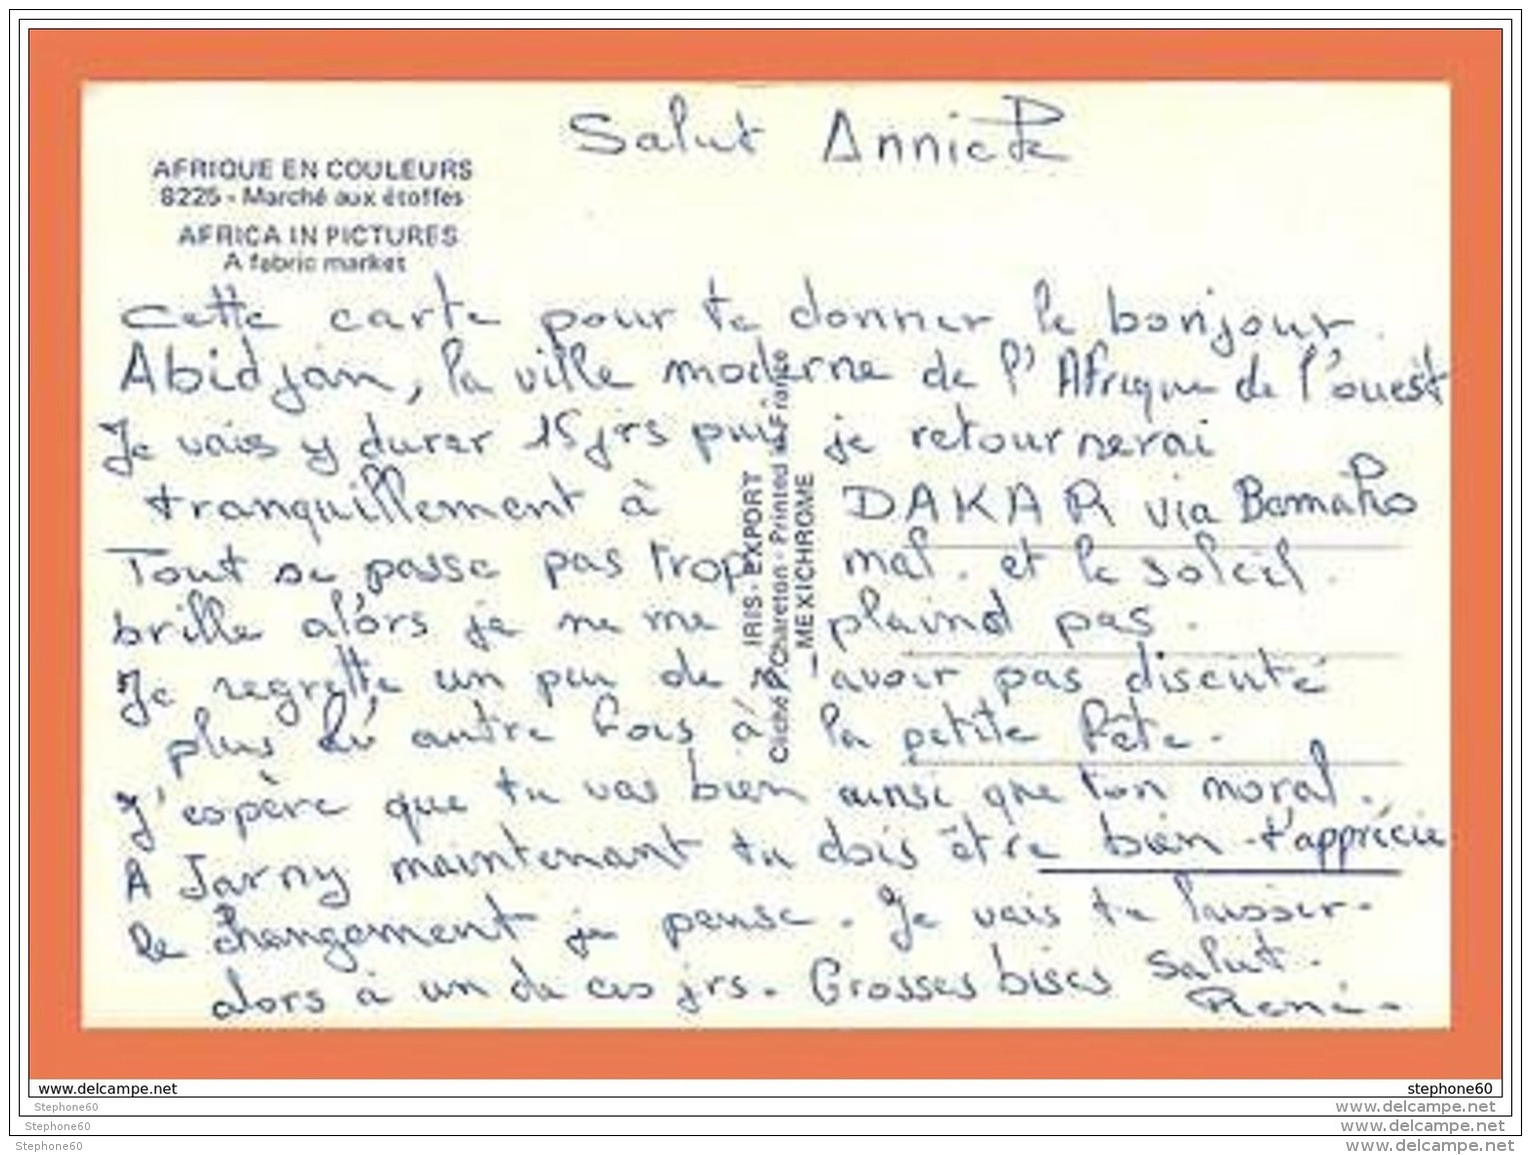 Salut Annick
AFRIQUE EN COULEURS
8225 - Marché aux étoffes
AFRICA IN PICTURES
A fabric market
Cette carte pour te donner le bonjour.
Abidjan, la ville moderne de l'Afrique de l'ouest
Je vais y durer 15 jrs puis je retournerai
tranquillement à DAKAR via Bamako
Tout se passe pas trop mal. et le soleil
brille alors je ne me plaind pas.
Je regrette un peu de n'avoir pas discuté
plus autre fois à la petite fête.
J'espère que tu vas bien ainsi que ton moral.
A Jarny maintenant tu dois être bien - t'apprécie
le changement je pense. Je vais te laisser.
alors à un de ces jrs. Grosses bises Salut.
René.
IRIS - EXPORT
Cliché P. Chareton - Printed in France
MEXICHROME
www.delcampe.net
stephone60
Stephone60
www.delcampe.net
Stephone60
www.delcampe.net
Stephone60
www.delcampe.net